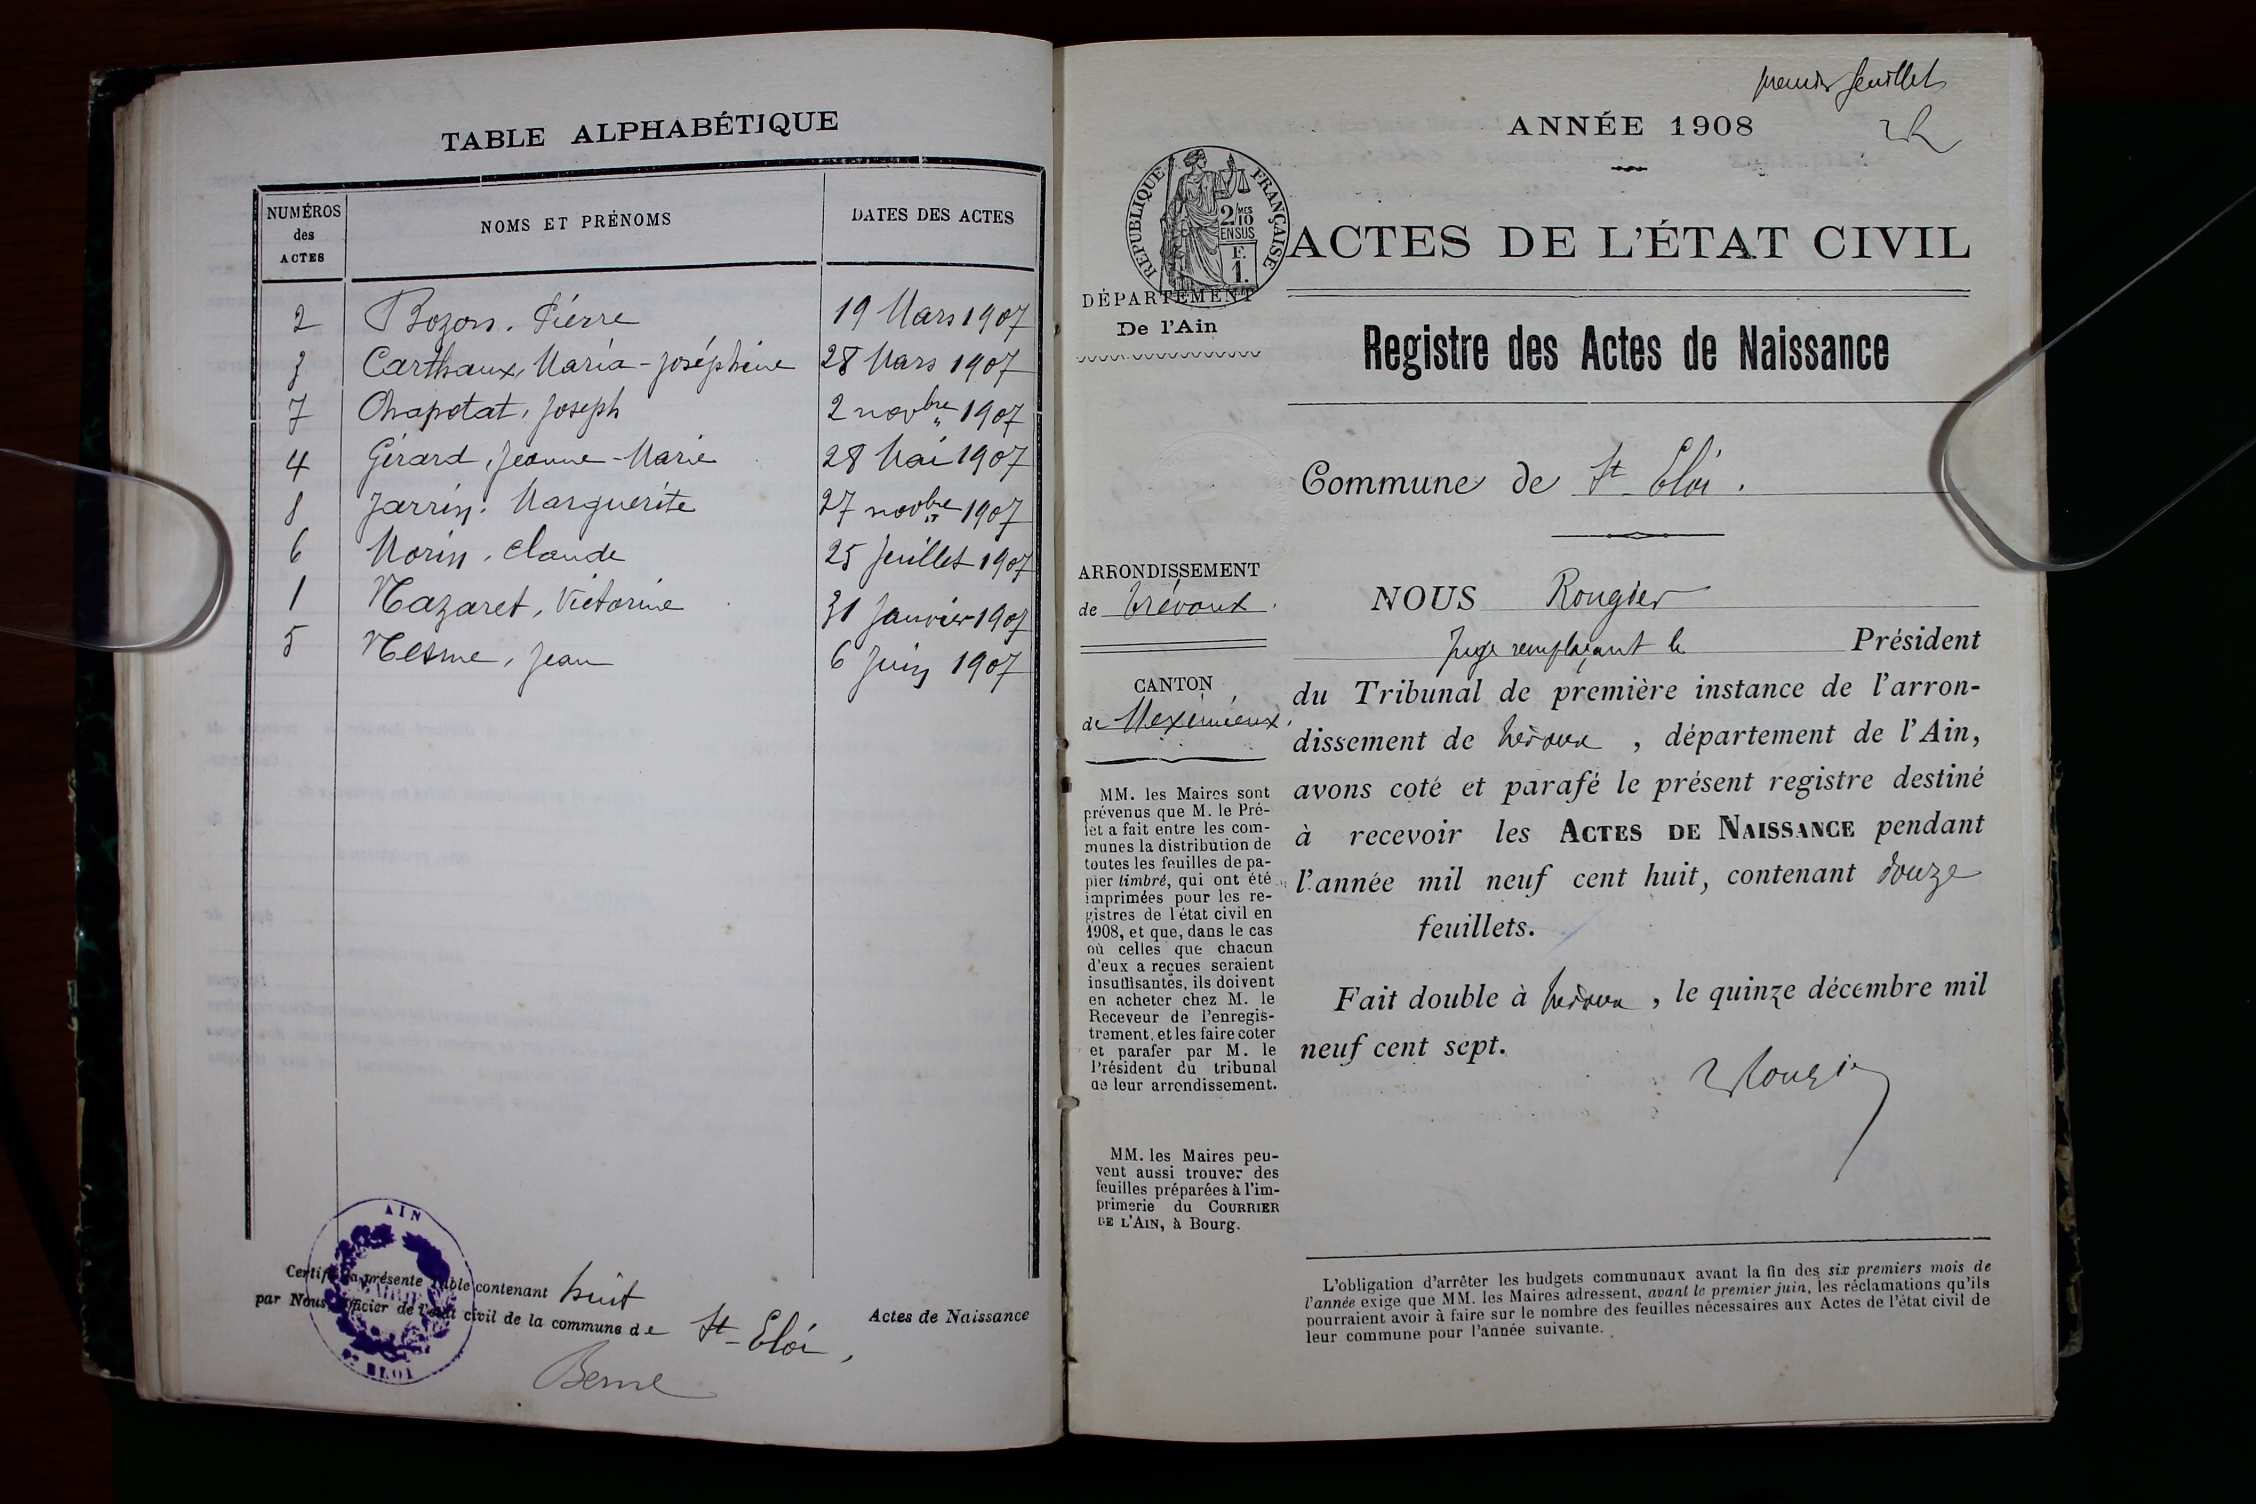 TABLE ALPHABÉTIQUE
NUMÉROS des ACTES
NOMS ET PRÉNOMS
DATES DES ACTES
2 Bozon, Pierre 19 Mars 1907
3 Carthaux, Maria-Joséphine 28 Mars 1907
7 Chapotat, Joseph 2 novbre 1907
4 Gérard, Jeanne-Marie 28 Mai 1907
8 Jarrin, Marguerite 27 novbre 1907
6 Morin, Claude 25 Juillet 1907
1 Nazaret, Victorine 31 Janvier 1907
5 Nesme, Jean 6 Juin 1907
Certifié la présente Table contenant huit Actes de Naissance
par Nous officier de l'état civil de la commune de St-Eloi,
AIN
MAIRIE
St ELOI
Berne
premier feuillet
ANNÉE 1908
REPUBLIQUE FRANÇAISE
2/10MES
EN SUS
F. 1.
ACTES DE L'ÉTAT CIVIL
DÉPARTEMENT
De l'Ain
Registre des Actes de Naissance
Commune de St Eloi.
ARRONDISSEMENT
de Trévoux.
CANTON
de Meximieux.
MM. les Maires sont
prévenus que M. le Pré-
fet a fait entre les com-
munes la distribution de
toutes les feuilles de pa-
pier timbré, qui ont été
imprimées pour les re-
gistres de l'état civil en
1908, et que, dans le cas
où celles que chacun
d'eux a reçues seraient
insuffisantes, ils doivent
en acheter chez M. le
Receveur de l'enregis-
trement, et les faire coter
et parafer par M. le
Président du tribunal
de leur arrondissement.
MM. les Maires peu-
vent aussi trouver des
feuilles préparées à l'im-
primerie du COURRIER
DE L'AIN, à Bourg.
NOUS Rougier
Juge remplaçant le Président
du Tribunal de première instance de l'arron-
dissement de Trévoux, département de l'Ain,
avons coté et parafé le présent registre destiné
à recevoir les ACTES DE NAISSANCE pendant
l'année mil neuf cent huit, contenant douze
feuillets.
Fait double à Trévoux, le quinze décembre mil
neuf cent sept.
Rougier
L'obligation d'arrêter les budgets communaux avant la fin des six premiers mois de
l'année exige que MM. les Maires adressent, avant le premier juin, les réclamations qu'ils
pourraient avoir à faire sur le nombre des feuilles nécessaires aux Actes de l'état civil de
leur commune pour l'année suivante.